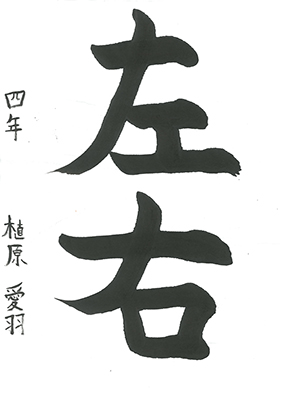 左右
四年 植原 愛羽